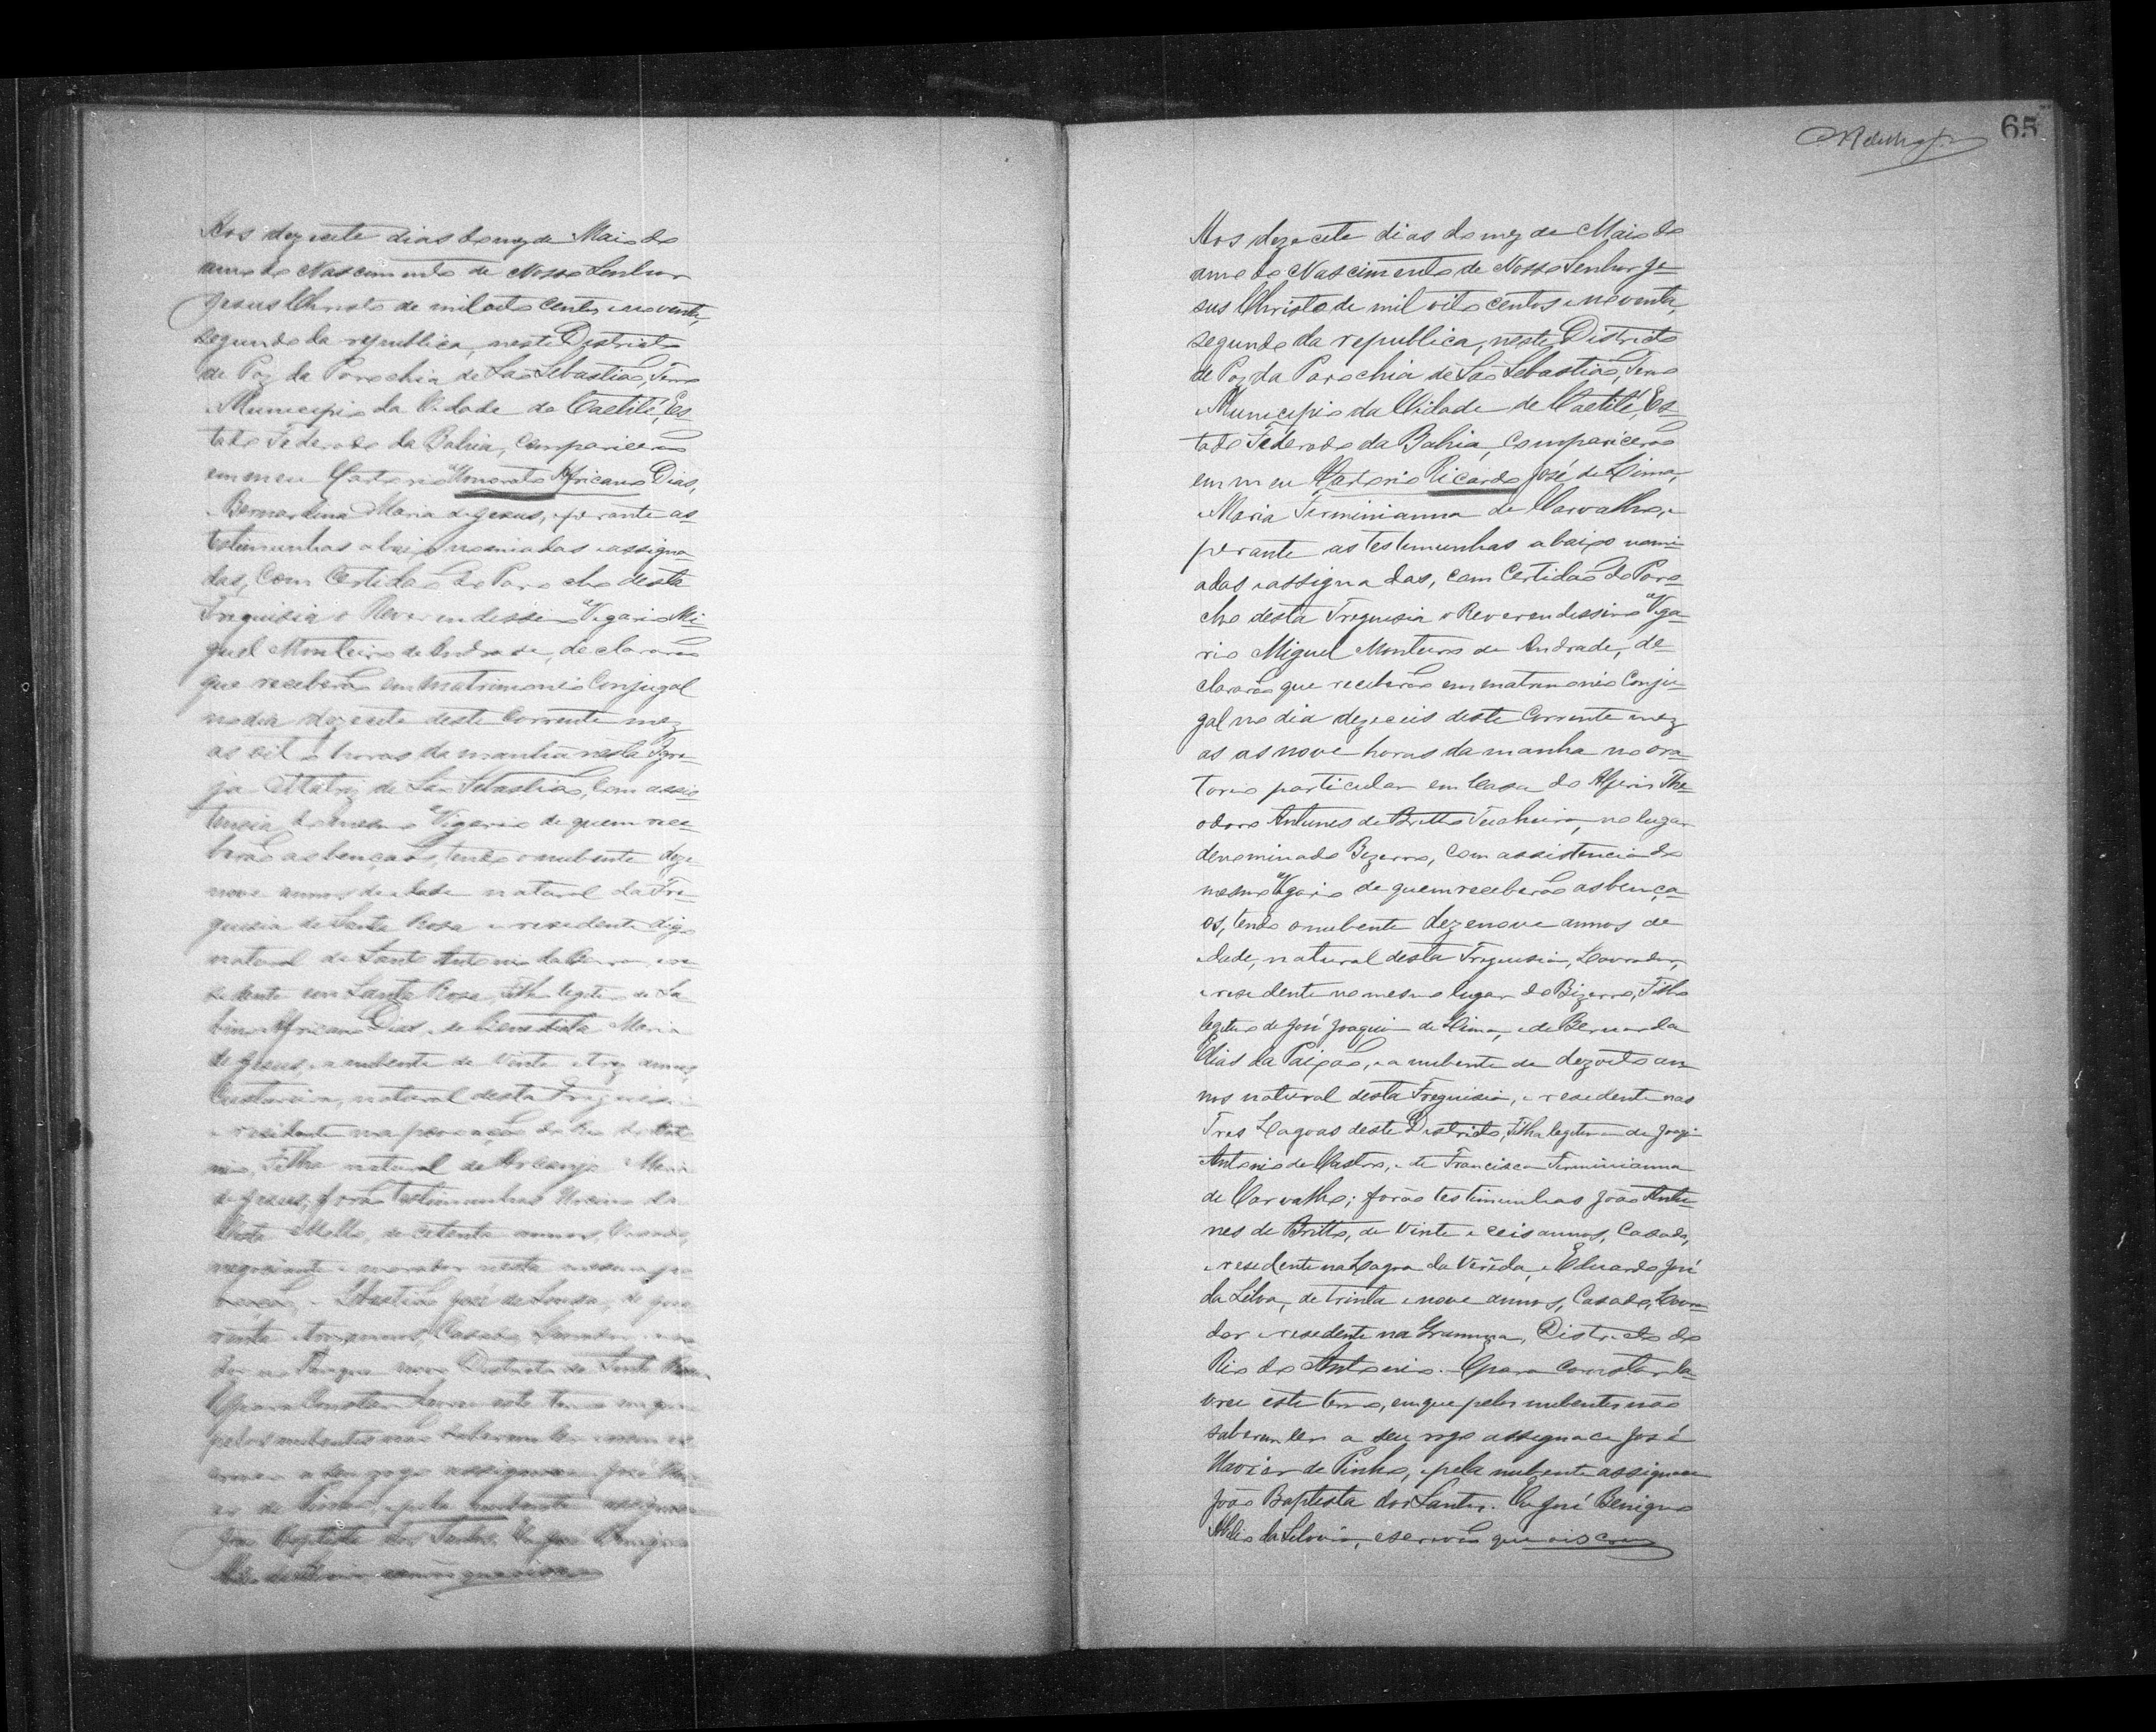 Aos dezecete dias do mez de Maio do
anno do Nascimento de Nosso Senhor
Jesus Christo de mil oito centos e noventa,
segundo da republica, neste Districto
de Paz da Parochia de São Sebastião, Termo
e Municipio da Cidade de Caetité, Es-
tado Federado da Bahia, comparicerão
em meu Cartorio Honorato Africano Dias,
e Bernardina Maria de Jesus, e perante as
testimunhas abaixo nomiadas e assigna
das, com Certidão do Parocho desta
Freguisia o Reverendissimo Vigario Mi-
guel Monteiro de Andrade, declararão
que receberão em matrimonio Conjugal
no dia dezecete deste Corrente mez
as oito horas da manhã nesta Igre-
ja Matriz de São Sebastião, com assis-
tencia do mesmo Vigario de quem rece-
berão as bençãos, tendo o nubente deze-
nove annos de idade natural da Fre-
guisia de Santa Rosa e residente digo
natural de Santo Antonio da Barra, e re-
sidente em Santa Rosa, filho legitimo de Sa-
bino Africano Dias, e de Benedicta Maria
de Jesus, e a nubente de vinte e trez annos,
Custureira, natural desta Freguisia
e residente na povoação do Rio do Anto
nio, Filha natural de Arcanja Maria
de Jesus; forão testimunhas
Mello, de cetenta annos,
negociante e morador nesta mesma po
voação, e José de Souza, de qua
renta e trez annos, Casado, Lavrador,
Districto de Santa Rosa
E para Constar lavrei este termo em que
pelos nubentes não saberem ler e nem es
crever a seu rogo assignace José Xavi
er de Pinho, e pela nubente assignace
João Baptista dos Santos. Eu José Benigno
escrivão que o iscrevi
65
Aos dezecete dias do mez de Maio do
anno do Nascimento de Nosso Senhor Je-
sus Christo de mil oito centos e noventa,
segundo da republica, neste Districto
de Paz da Parochia de São Sebastião, Termo
e Municipio da Cidade de Caetité, Es-
tado Federado da Bahia, comparicerão
em meu Cartorio Ricardo José de Lima,
e Maria Firminianna de Carvalho, e
perante as testemunhas abaixo nomi-
adas e assignadas, com Certidão do Paro-
cho desta Freguisia o Reverendissimo Viga-
rio Miguel Monteiro de Andrade, de-
clararão que receberão em matrimonio Conju-
gal no dia dezeceis deste Corrente mez
as as nove horas da manha no ora-
torio particular em Casa do Alferis The-
odoro Antunes de Britto Teicheira, no lugar
denominado Bizerro, com assistencia do
mesmo Vigario de quem receberão as bença-
os, tendo o nubente dezenove annos de
idade, natural desta Freguisia, Lavrador,
e residente no mesmo lugar do Bizerro, Filho
legitimo de José Joaquim de Lima, e de Bernarda
Elias da Paixão, e a nubente de dezoito an
nos natural desta Freguisia, e residente nas
Tres Lagoas deste Districto, Filha legitima de Joaqm
Antonio de Castro, e de Francisca Firminianna
de Carvalho; forão testimunhas João Antu-
nes de Britto, de vinte e ceis annos, Casado,
e residente na Lagoa da Vereda, e Eduardo José
da Silva, de trinta e nove annos, Casado, Lavra-
dor e residente na Gramma, Districto do
Rio do Antonio. E para Constar la-
vrei este termo, em que pelos nubentes não
saberem ler a seu rogo assignace José
Xavier de Pinho, e pela nubente assignace
João Baptista dos Santos. Eu José Benigno
escrivão que o iscrevi